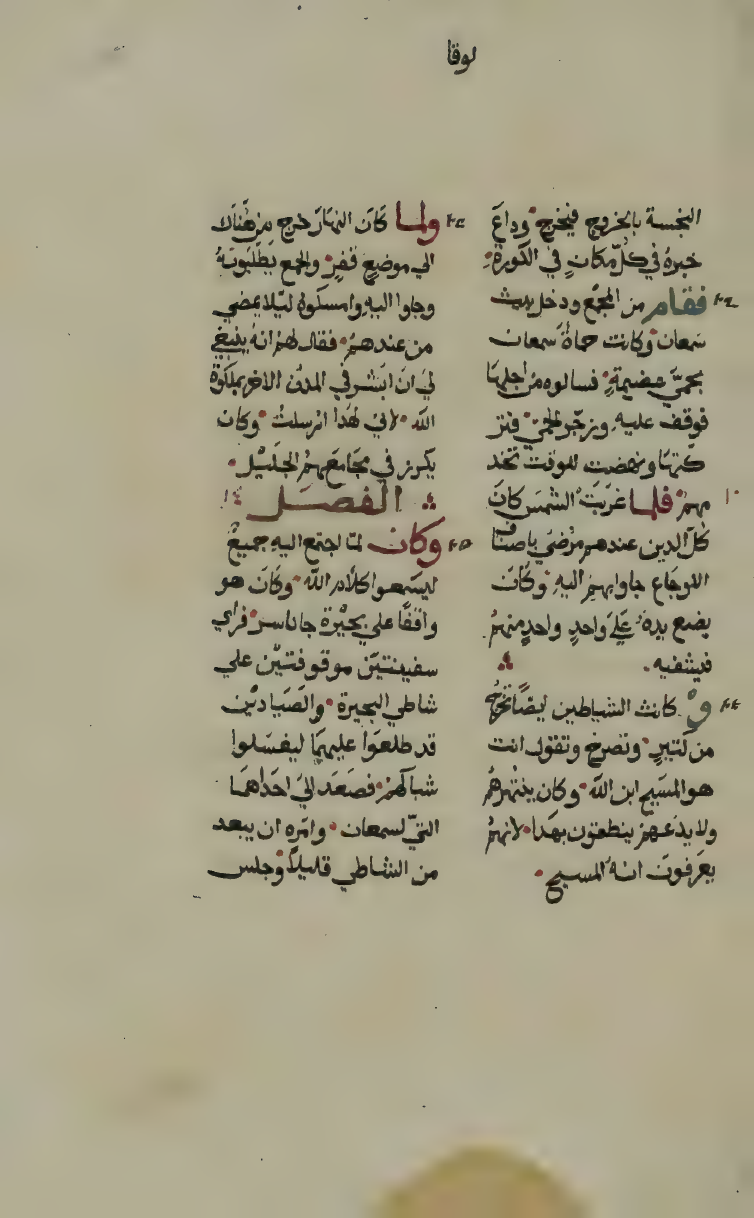 لوقا
النجسة بالخروج فيخرج وداع
خبره في كل مكان في الكورة
فقام من المجمع ودخل بيت
سمعان وكانت حماة سمعان
بحمي عضيمة فسالوه من اجلها
فوقف عليه وزجر الحمي فتر
كتها ونهضت للوقت تخد
مهم فلما غربت الشمس كان
كل الدين عندهم مرضي باصناف
الاوجاع جاوا بهم اليه وكان
يضع يده علي واحد واحد منهم
فيشفيه
و كانت الشياطين ايضا تخرج
من كتير وتصرخ وتقول انت
هو المسيح ابن الله وكان ينتهرهم
ولا يدعهم ينطقون بهدا لانهم
يعرفون انه المسيح
ولما كان النهار خرج من هناك
الي موضع قفر والجمع يطلبونه
وجاوا اليه وامسكوه ليلا يمضي
من عندهم فقال لهم انه ينبغي
لي ان ابشر في المدن الاخر بملكوة
الله لاني لهدا ارسلت وكان
يكرز في مجامعهم الجليل
الفصل
وكان لما اجتمع اليه جميع
ليسمعوا كلام الله وكان هو
واقفا علي بحيرة جاناسر فراي
سفينتين موقوفتين علي
شاطي البحيرة والصيادين
قد طلعوا عليهما ليغسلوا
شباكهم فصعد الي احداهما
التي لسمعان وامره ان يبعد
من الشاطي قليلا وجلس